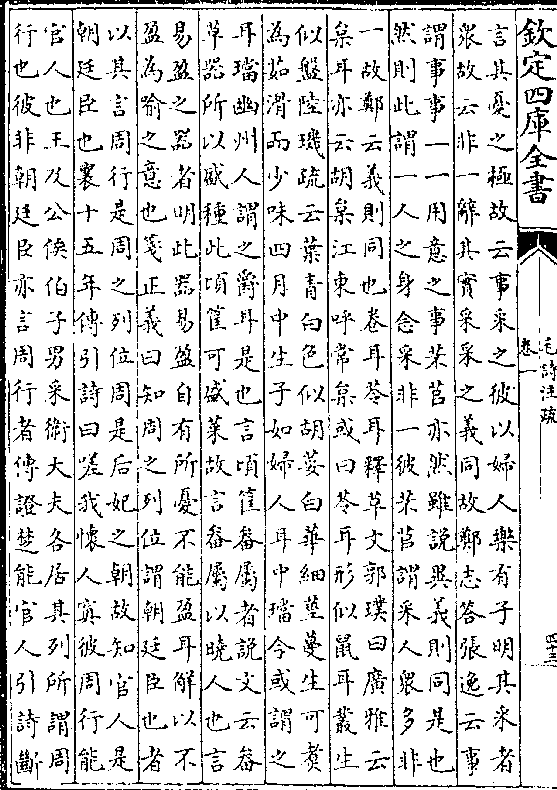 欽定四庫全書
毛詩注疏
卷一
四十三
言其憂之極故云事采之彼以婦人樂有子明其采者
衆故云非一辭其實采采之義同故鄭志答張逸云事
謂事事一一用意之事芣苢亦然雖說異義則同是也
然則此謂一人之身念采非一彼芣苢謂采人衆多非
一故鄭云義則同也卷耳苓耳釋草文郭璞曰廣雅云
枲耳亦云胡枲江東呼常枲或曰苓耳形似鼠耳叢生
似盤陸璣疏云葉青白色似胡荽白華細莖蔓生可煑
為茹滑而少味四月中生子如婦人耳中璫今或謂之
耳璫幽州人謂之爵耳是也言頃筐畚屬者說文云畚
草器所以盛種此頃筐可盛菜故言畚屬以曉人也言
易盈之器者明此器易盈自有所憂不能盈耳解以不
盈為喻之意也箋正義曰知周之列位謂朝廷臣也者
以其言周行是周之列位周是后妃之朝故知官人是
朝廷臣也襄十五年傳引詩曰嗟我懷人寘彼周行能
官人也王及公侯伯子男采衛大夫各居其列所謂周
行也彼非朝廷臣亦言周行者傳證楚能官人引詩斷